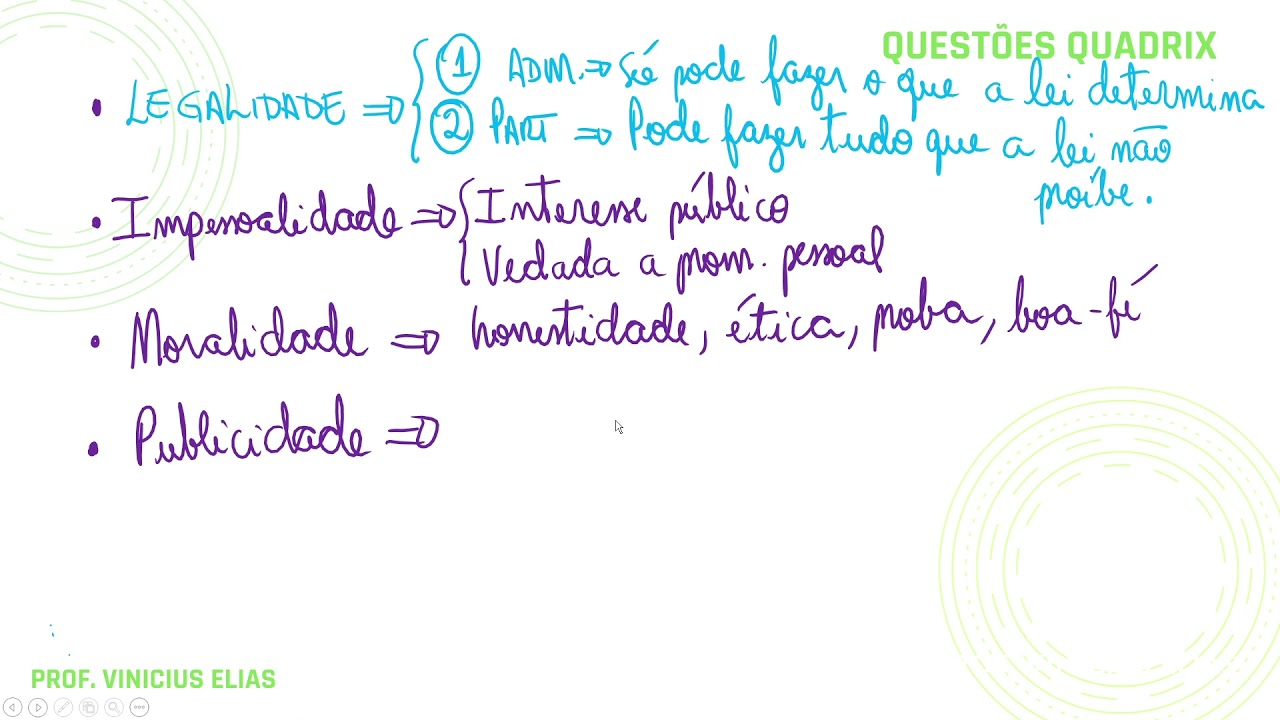 QUESTÕES QUADRIX
• LEGALIDADE ⇒ { 1 ADM. ⇒ Só pode fazer o que a lei determina
2 PART ⇒ Pode fazer tudo que a lei não
proíbe.
• Impessoalidade ⇒ { Interesse público
Vedada a prom. pessoal
• Moralidade ⇒ honestidade, ética, proba, boa-fé
• Publicidade ⇒
PROF. VINICIUS ELIAS